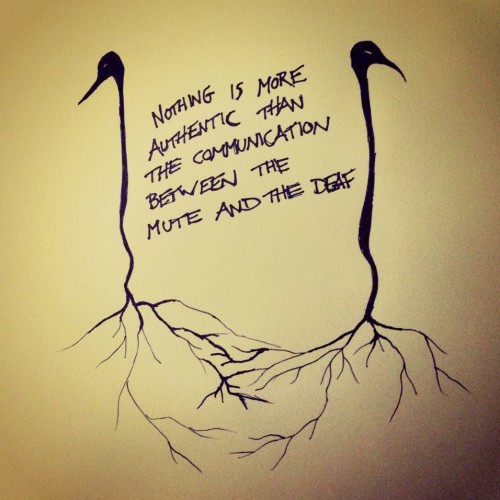 NOTHING IS MORE
AUTHENTIC THAN
THE COMMUNICATION
BETWEEN THE
MUTE AND THE DEAF